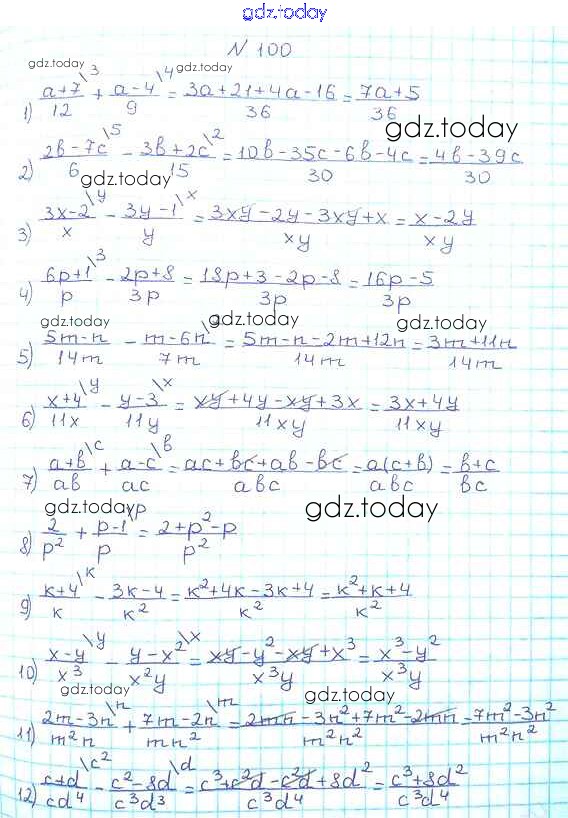 gdz.today
N 100
gdz.today gdz.today
1) (a+7)/12 \3 + (a-4)/9 \4 = (3a+21+4a-16)/36 = (7a+5)/36
gdz.today
2) (2b-7c)/6 \5 - (3b+2c)/15 \2 = (10b-35c-6b-4c)/30 = (4b-39c)/30
gdz.today
3) (3x-2)/x \y - (3y-1)/y \x = (3xy-2y-3xy+x)/xy = (x-2y)/xy
4) (6p+1)/p \3 - (2p+8)/3p = (18p+3-2p-8)/3p = (16p-5)/3p
gdz.today gdz.today gdz.today
5) (5m-n)/14m - (m-6n)/7m \2 = (5m-n-2m+12n)/14m = (3m+11n)/14m
6) (x+4)/11x \y - (y-3)/11y \x = (xy+4y-xy+3x)/11xy = (3x+4y)/11xy
7) (a+b)/ab \c + (a-c)/ac \b = (ac+bc+ab-bc)/abc = a(c+b)/abc = (b+c)/bc
gdz.today gdz.today
8) 2/p² + (p-1)/p \p = (2+p²-p)/p²
9) (k+4)/k \k - (3k-4)/k² = (k²+4k-3k+4)/k² = (k²+k+4)/k²
10) (x-y)/x³ \y - (y-x²)/x²y \x = (xy-y²-xy+x³)/x³y = (x³-y²)/x³y
gdz.today gdz.today
11) (2m-3n)/m²n \n + (7m-2n)/mn² \m = (2mn-3n²+7m²-2mn)/m²n² = (7m²-3n²)/m²n²
12) (c+d)/cd⁴ \c² - (c²-8d)/c³d³ \d = (c³+c²d-c²d+8d²)/c³d⁴ = (c³+8d²)/c³d⁴
gdz.today